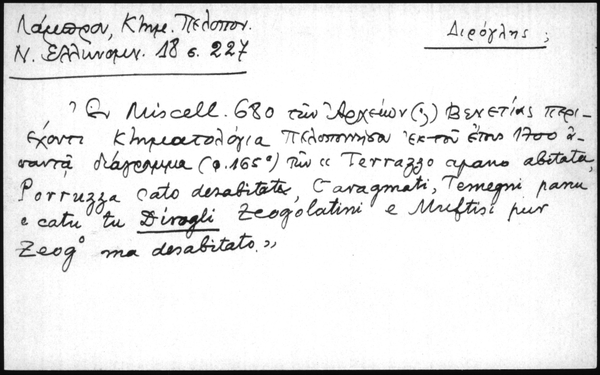 Λάμπρου, Κτημ. Πελοπον.
Διρόγλης ;
Ν. Ελληνομν. 18 σ. 227
Ἐν Miscell. 680 τῶν Ἀρχείων (ς) Βενετίας περι-
έχοντι Κτηματολόγια Πελοποννήσου ἐκ τοῦ ἔτους 1700 ἀ-
παντᾷ διάγραμμα (φ. 165°) τῶν « Terrazzo apano abitata,
Porruzza cato desabitata, Caragmati, Temegni panu
e catu tu Dirogli Zeogolatini e Muftis pur
Zeog° ma desabitato.»